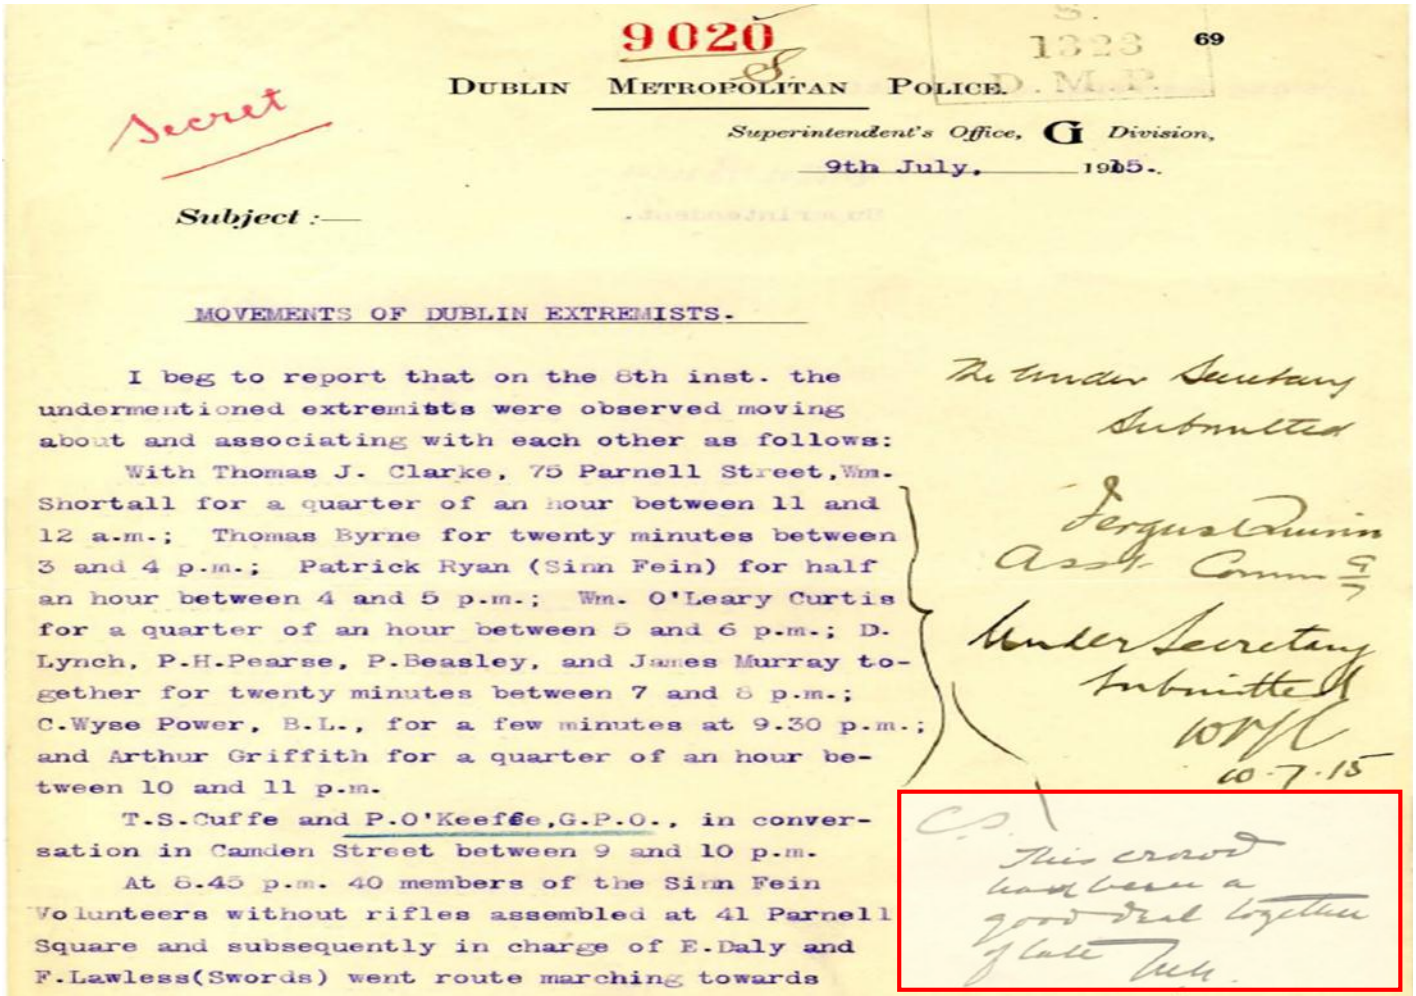 9020
S.
S.
1323
D.M.P.
69
Secret
DUBLIN METROPOLITAN POLICE.
Superintendent's Office, G Division,
9th July, 1915.
Subject :—
MOVEMENTS OF DUBLIN EXTREMISTS.
I beg to report that on the 8th inst. the
undermentioned extremists were observed moving
about and associating with each other as follows:
With Thomas J. Clarke, 75 Parnell Street,Wm.
Shortall for a quarter of an hour between 11 and
12 a.m.; Thomas Byrne for twenty minutes between
3 and 4 p.m.; Patrick Ryan (Sinn Fein) for half
an hour between 4 and 5 p.m.; Wm. O'Leary Curtis
for a quarter of an hour between 5 and 6 p.m.; D.
Lynch, P.H.Pearse, P.Beasley, and James Murray to-
gether for twenty minutes between 7 and 8 p.m.;
C.Wyse Power, B.L., for a few minutes at 9.30 p.m.;
and Arthur Griffith for a quarter of an hour be-
tween 10 and 11 p.m.
T.S.Cuffe and P.O'Keeffe,G.P.O., in conver-
sation in Camden Street between 9 and 10 p.m.
At 8.45 p.m. 40 members of the Sinn Fein
Volunteers without rifles assembled at 41 Parnell
Square and subsequently in charge of E.Daly and
F.Lawless(Swords) went route marching towards
The Under Secretary
Submitted
Fergus Quinn
Asst. Commr 9/7
Under Secretary
Submitted
10.7.15
C.S.
This crowd
have been a
good deal together
of late